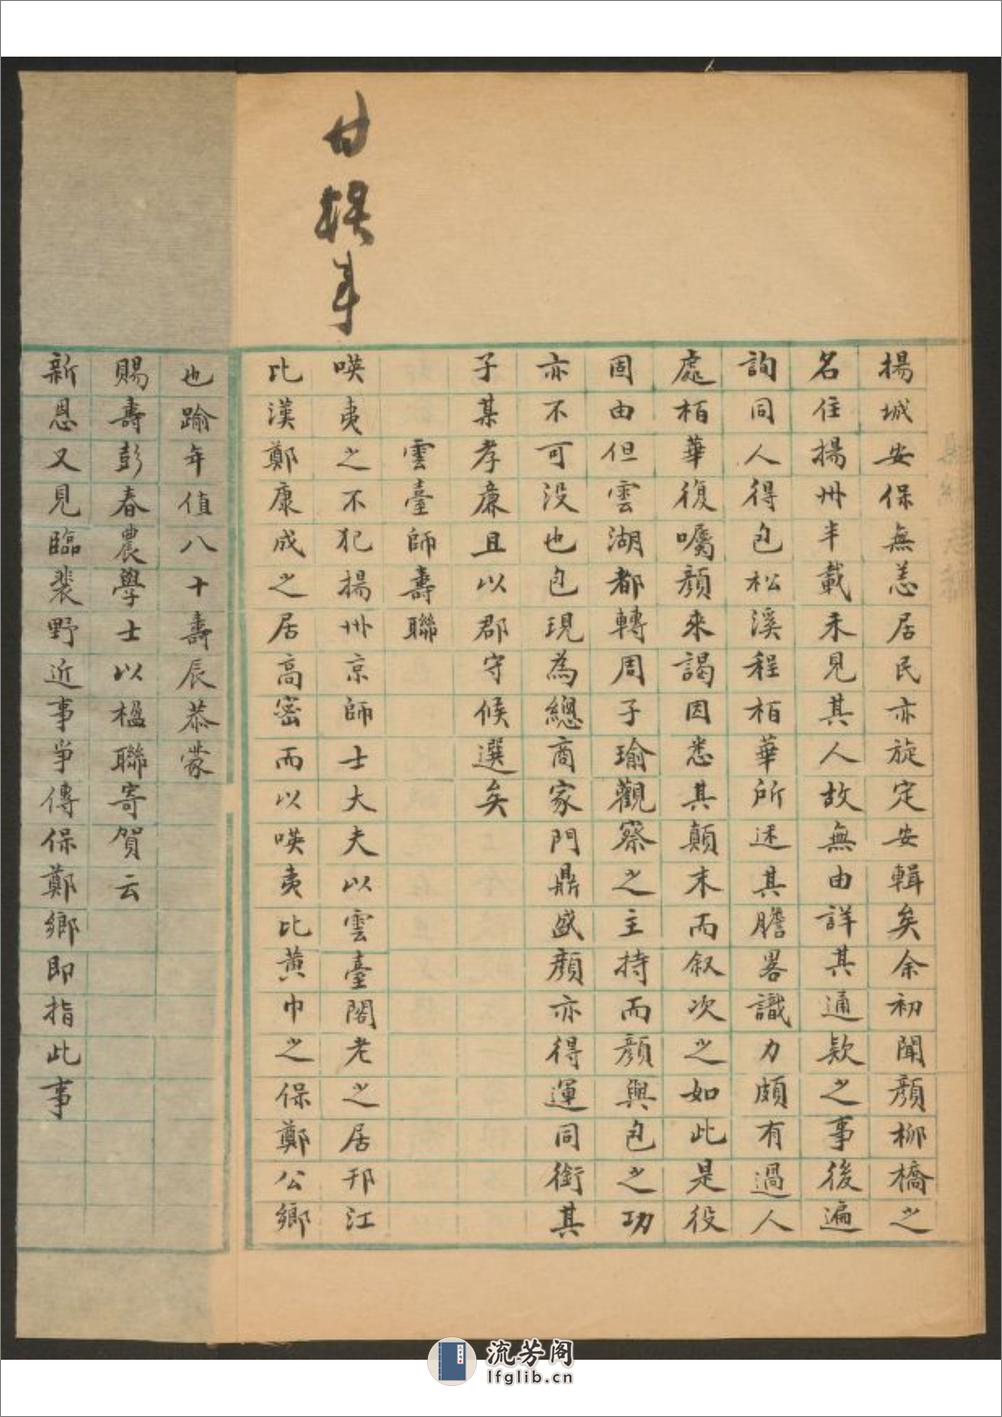 揚城安保無恙居民亦旋定安輯矣余初聞顏柳橋之
名住揚州半載未見其人故無由詳其通欵之事後遍
詢同人得包松溪程栢華所述其膽畧識力頗有過人
處栢華復囑顏來謁因悉其顛末而叙次之如此是役
固由但雲湖都轉周子瑜觀察之主持而顏與包之功
亦不可沒也包現為總商家門鼎盛顏亦得運同銜其
子某孝廉且以郡守候選矣
雲臺師壽聯
𠸄夷之不犯揚州京師士大夫以雲臺閣老之居邗江
比漢鄭康成之居高密而以𠸄夷比黃巾之保鄭公鄉
也踰年值八十壽辰恭蒙
賜壽彭春農學士以楹聯寄賀云
新恩又見臨裴野近事爭傳保鄭鄉即指此事
流芳阁
lfglib.cn